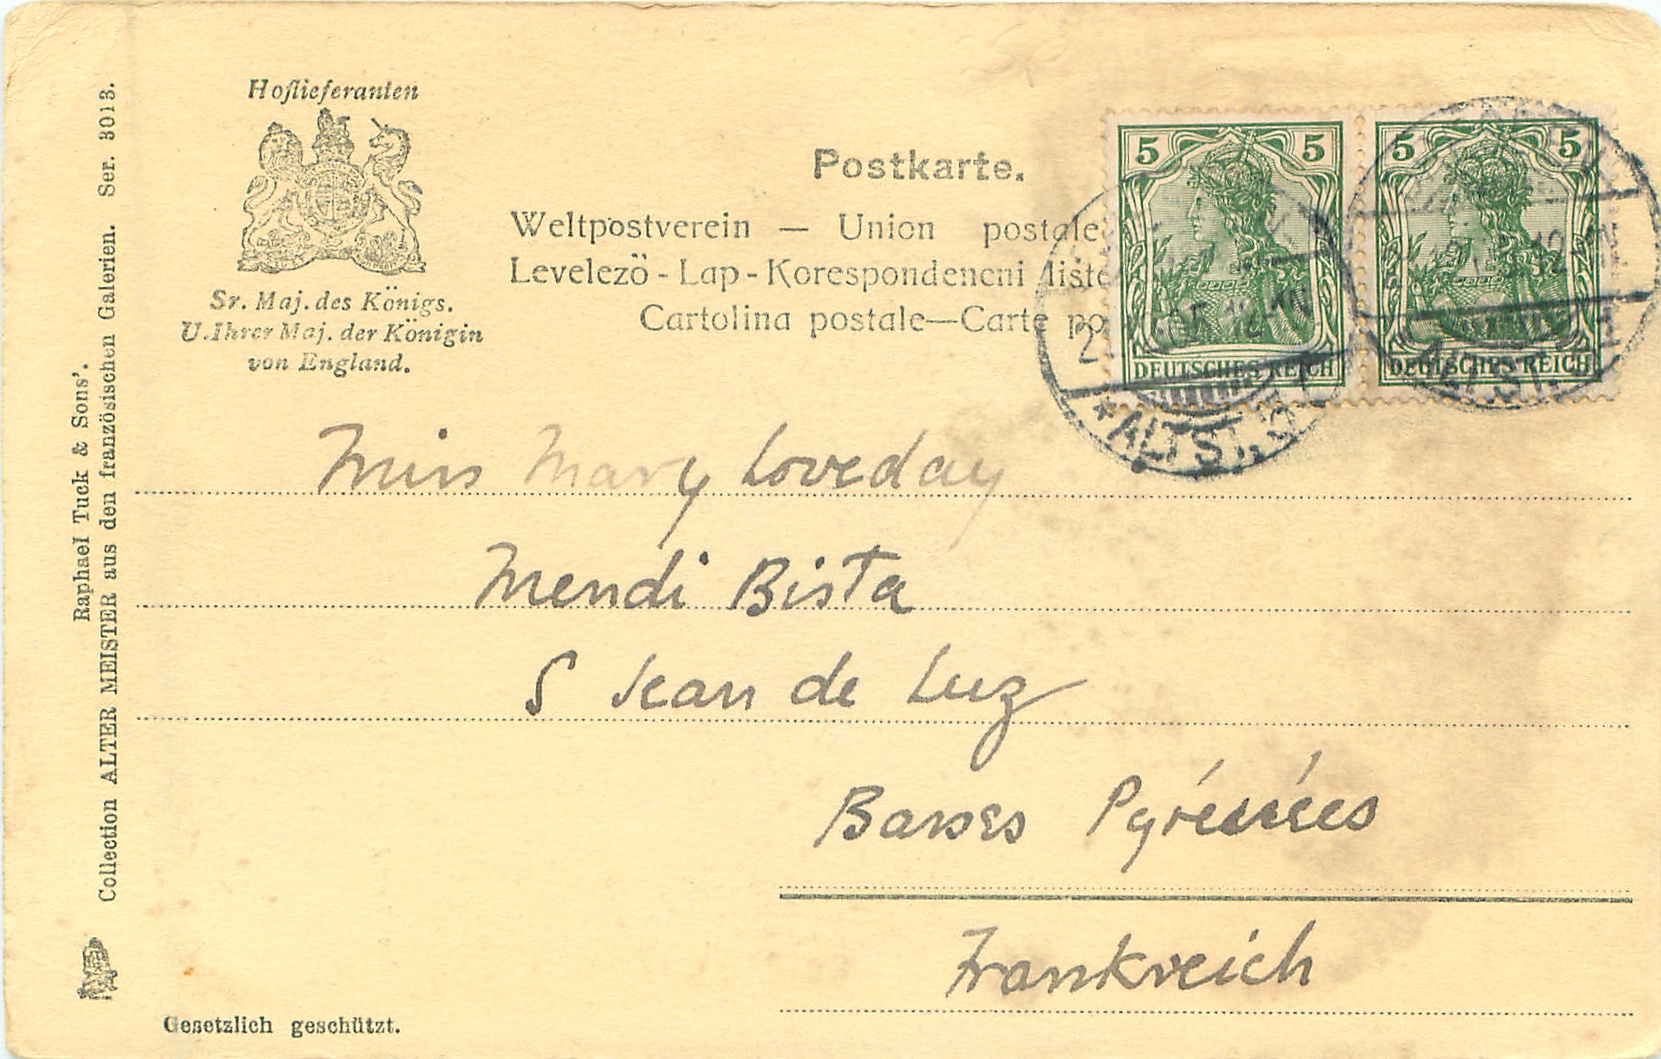 Hoflieferanten
Sr. Maj. des Königs.
U. Ihrer Maj. der Königin
von England.
Postkarte.
Weltpostverein — Union postale
Levelezö - Lap - Korespondencni liste
Cartolina postale—Carte po
5 5
DEUTSCHES REICH
5 5
DEUTSCHES REICH
*ALTST.
ALTST.
Miss Mary Loveday
Mendi Bista
S Jean de Luz
Basses Pyrénées
Frankreich
Raphael Tuck & Sons'.
Collection ALTER MEISTER aus den französischen Galerien. Ser. 3013.
Gesetzlich geschützt.